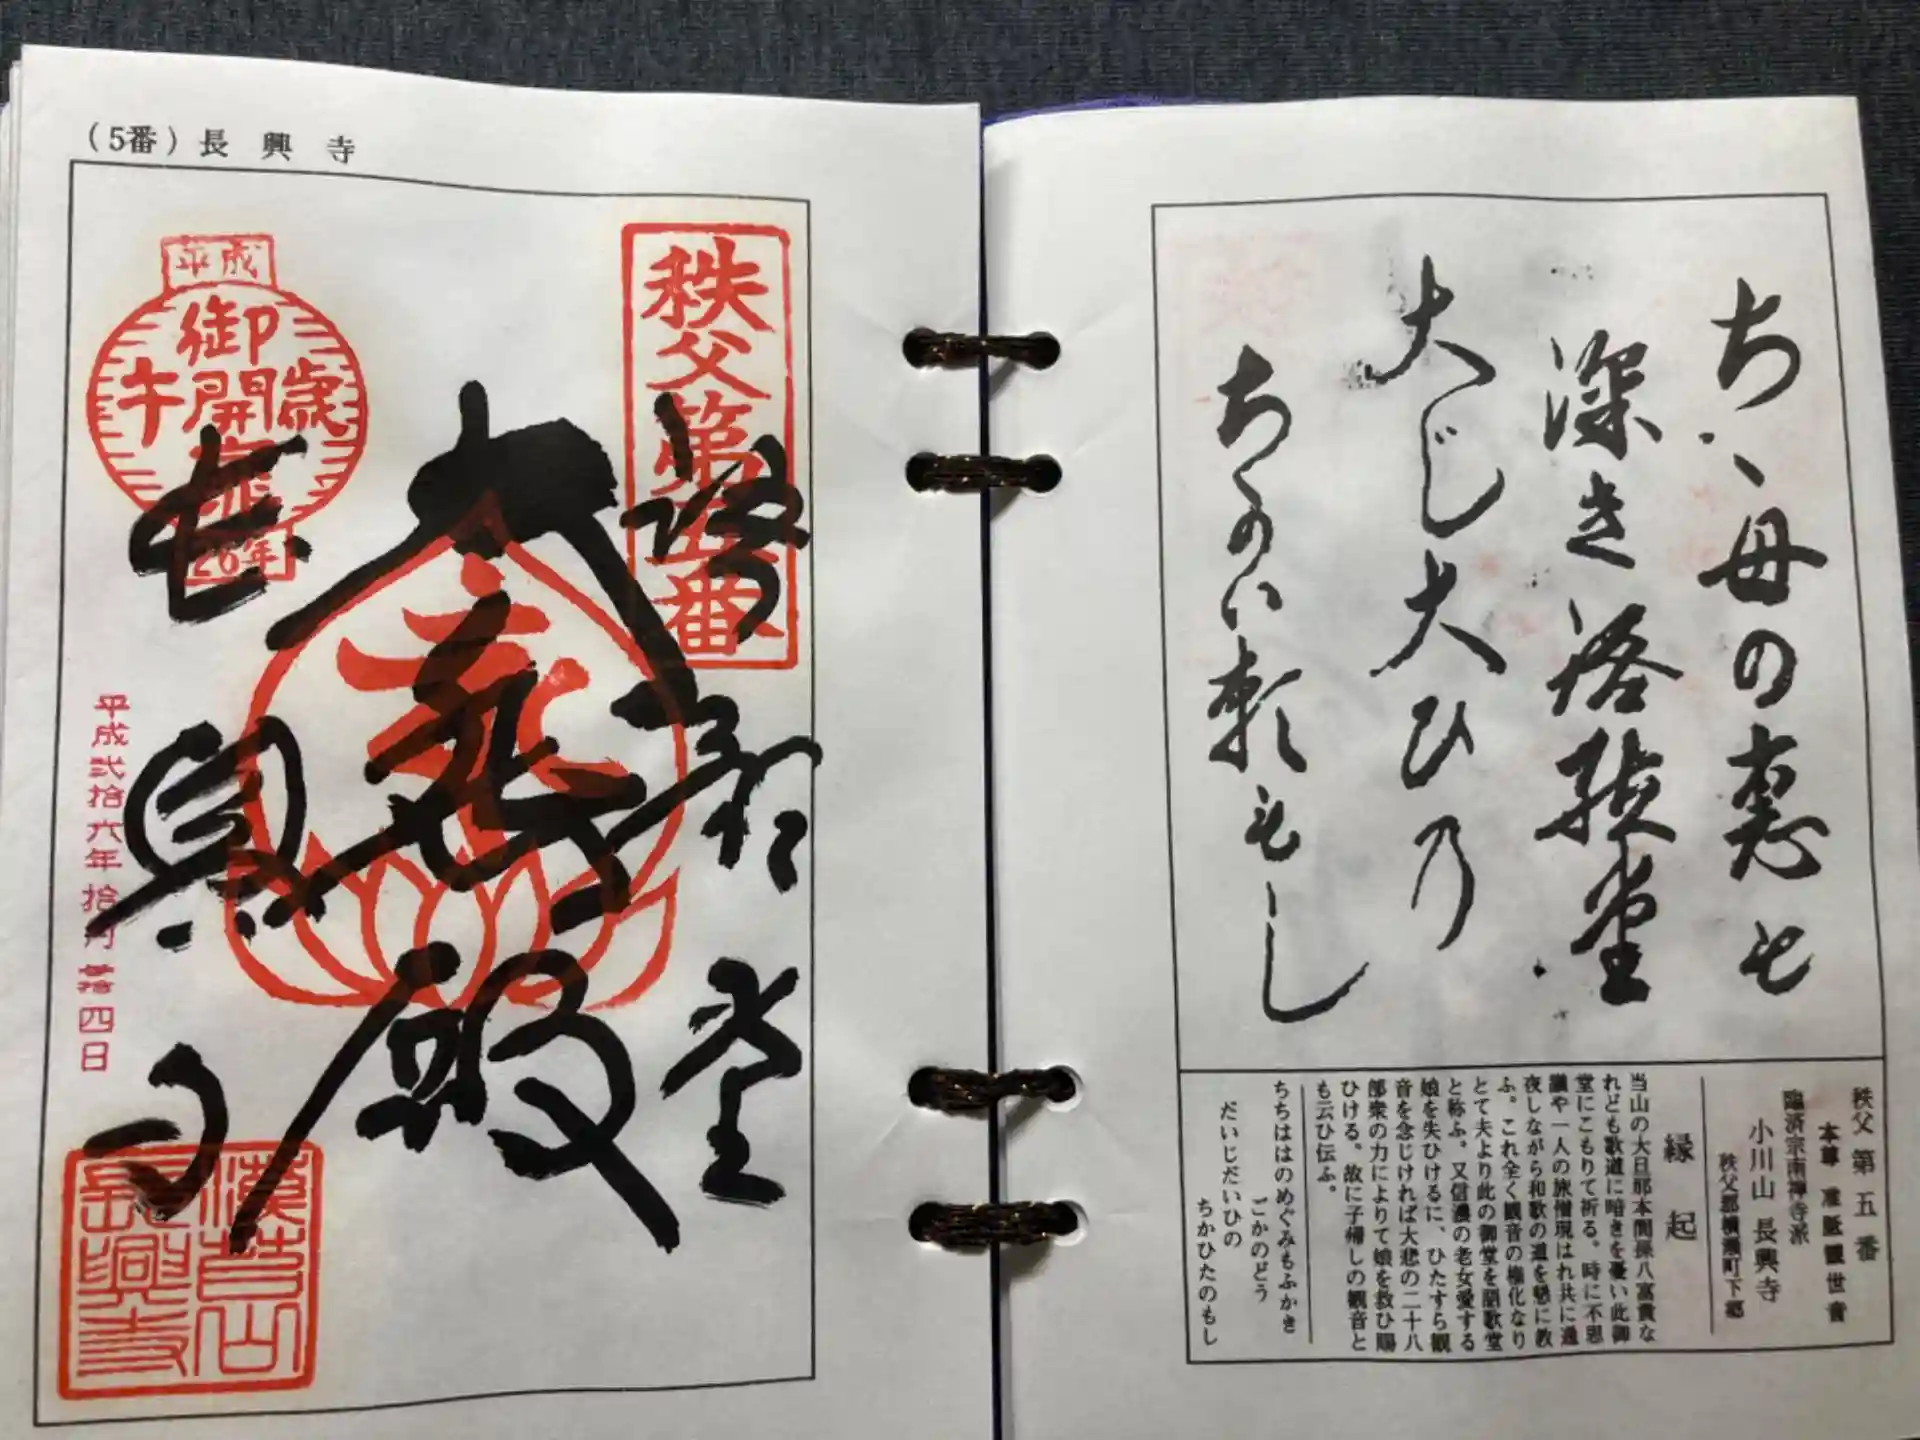 (5番) 長興寺
平成
御開帳
午歳
26年
秩父第五番
語歌堂
大悲殿
長興寺
平成弐拾六年拾月弐拾四日
長興寺
ちゝ母の恵も
深き語歌堂
大じ大ひの
ちかひ頼もし
秩父第五番
本尊 准胝観世音
臨済宗南禅寺派
小川山 長興寺
秩父郡横瀬町下郷
縁起
当山の大日那本間孫八富貴な
れども歌道に暗きを憂い此御
堂にこもりて祈る。時に不思
議や一人の旅僧現はれ共に通
夜しながら和歌の道を懇に教
ふ。これ全く観音の権化なり
とて夫より此の御堂を語歌堂
と称ふ。又信濃の老女愛する
娘を失ひけるに、ひたすら観
音を念じければ大悲の二十八
部衆の力によりて娘を救ひ賜
ひける。故に子帰しの観音と
も云ひ伝ふ。
ちちははのめぐみもふかき
ごかのどう
だいじだいひの
ちかひたのもし